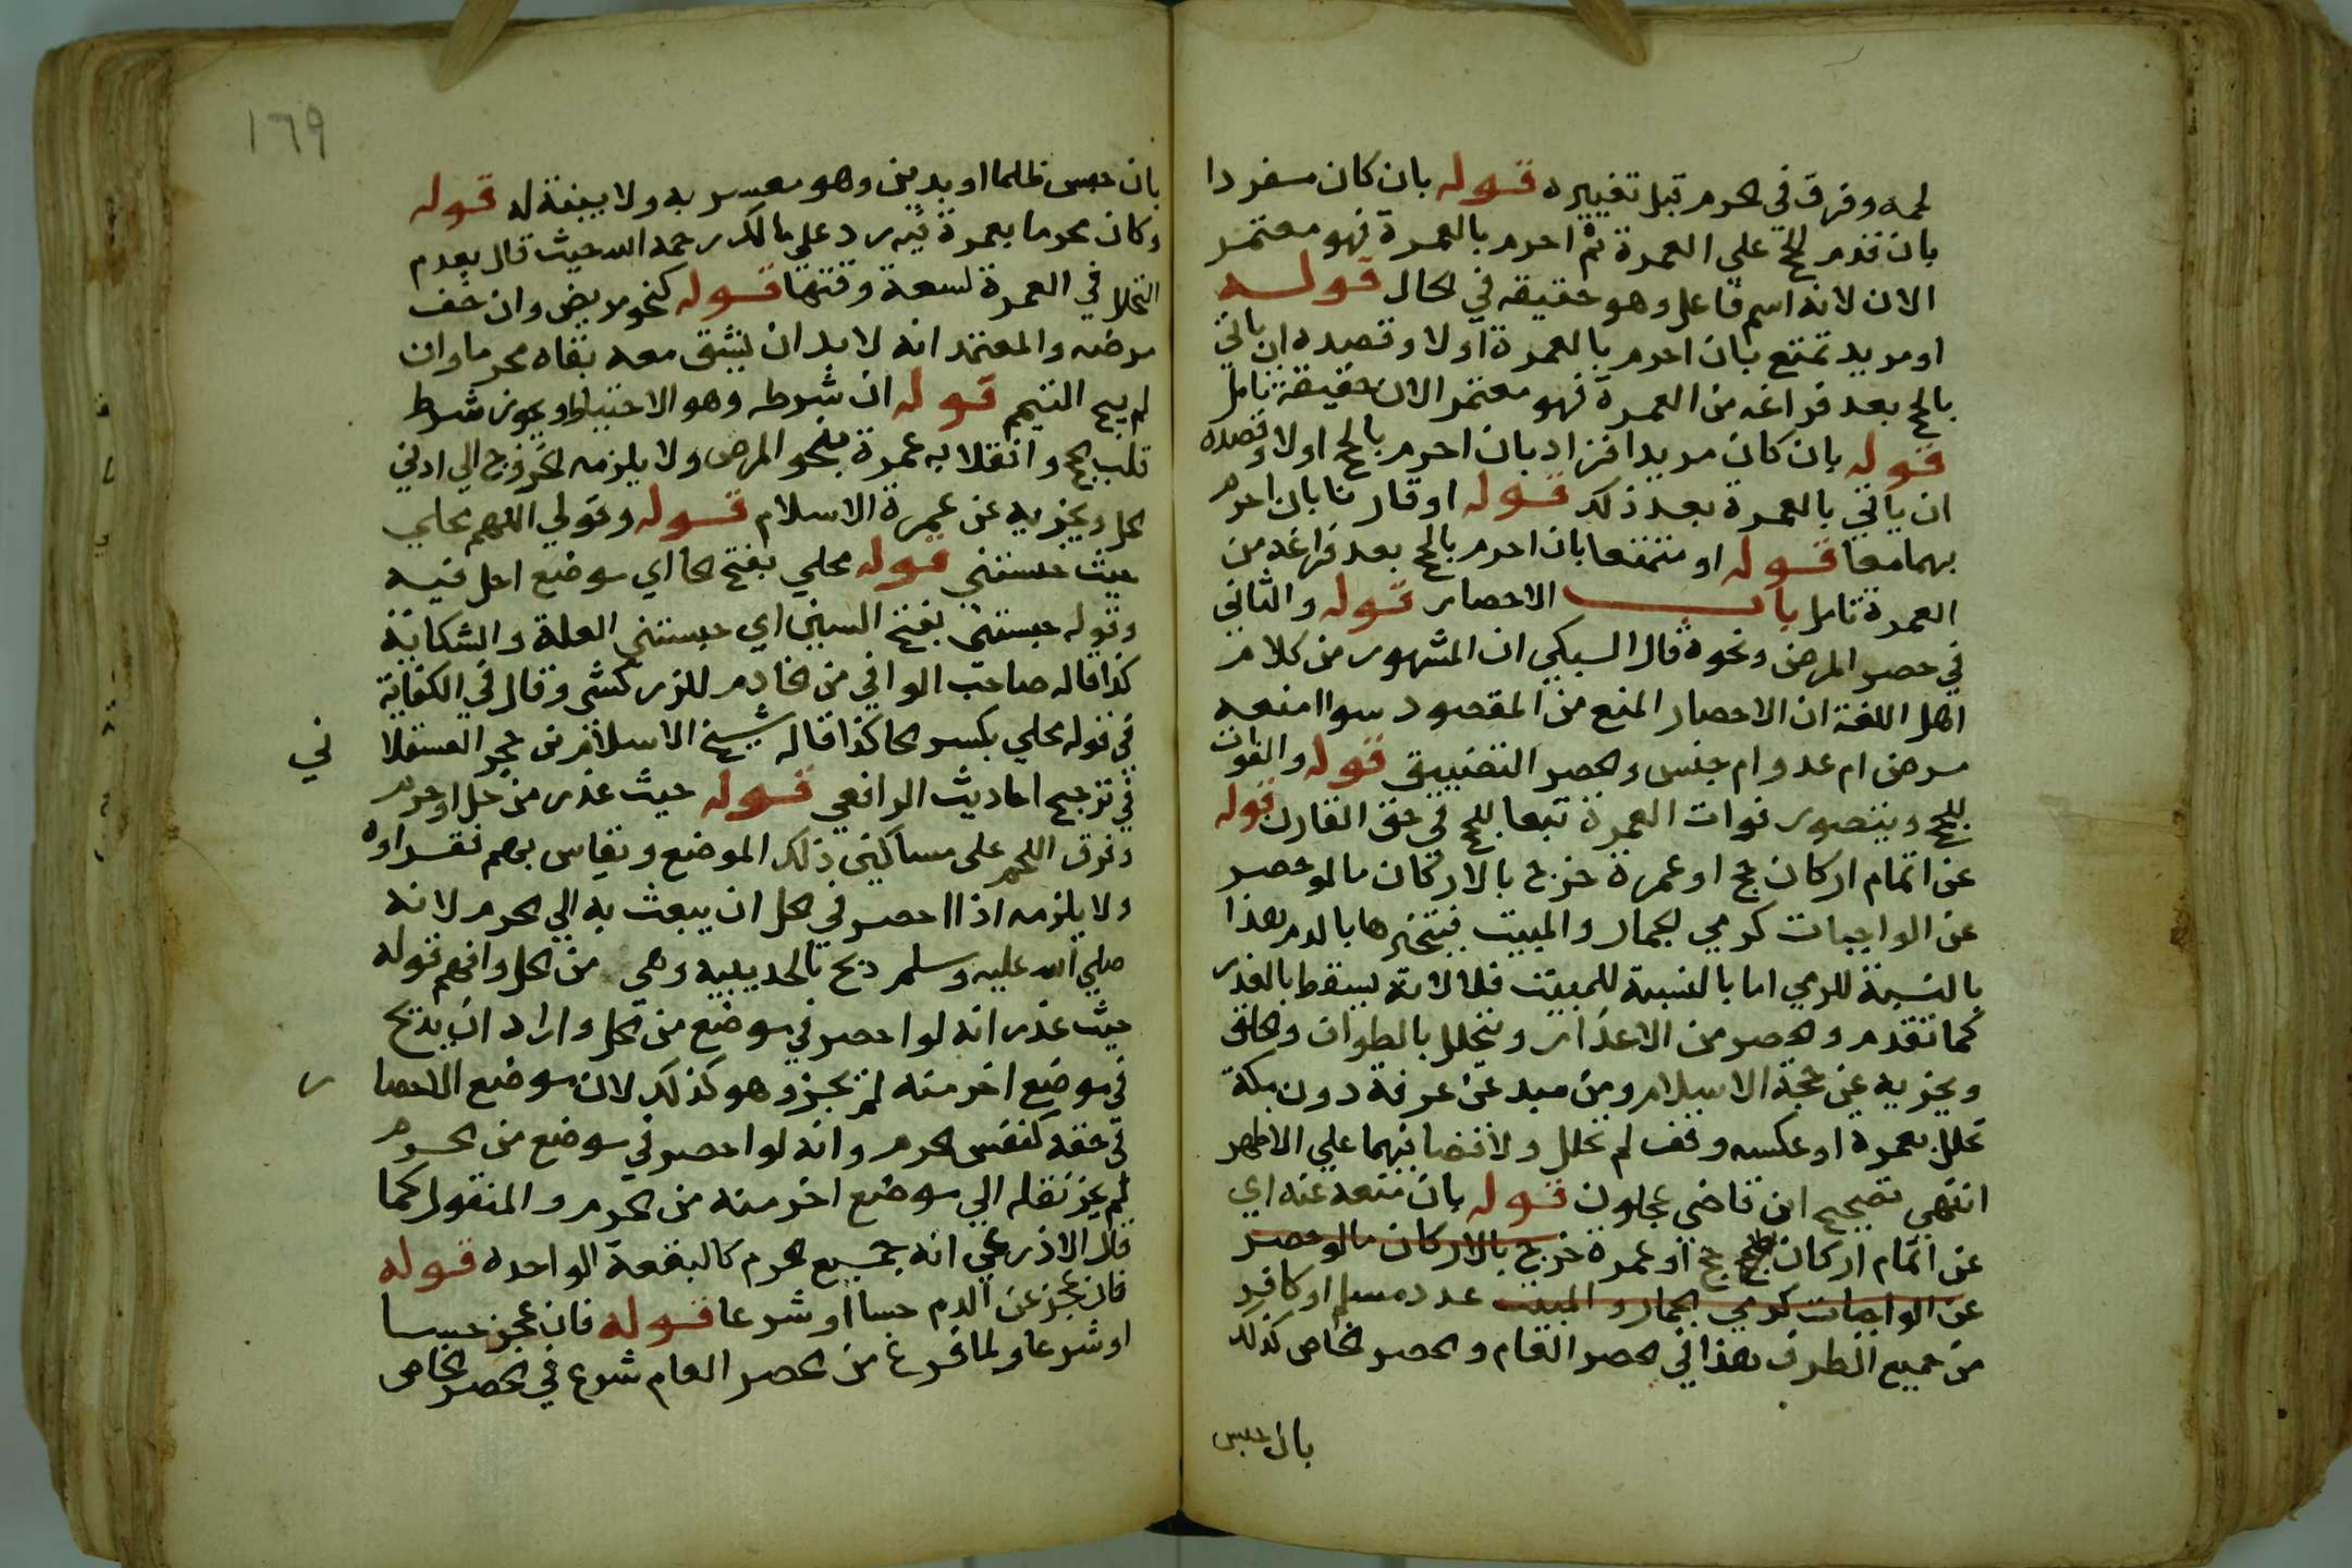 لحمه وفرق في الحرم قبل تغييره قوله بان كان مفردا
بان قدم الحج علي العمرة ثم احرم بالعمرة فهو معتمر
الان لانه اسم فاعل وهو حقيقه في الحال قوله
او مريد تمتع بان احرم بالعمرة اولا وقصده ان ياتي
بالحج بعد فراغه من العمرة فهو معتمر الان حقيقة تامل
قوله بان كان مريدا افراد بان احرم بالحج اولا وقصده
ان ياتي بالعمرة بعد ذلك قوله او قارنا بان احرم
بهما معا قوله او متمتعا بان احرم بالحج بعد فراغه من
العمرة تامل باب الاحصار قوله والثاني
في حصر المرض ونحوه قال السبكي ان المشهور من كلام
اهل اللغة ان الاحصار المنع من المقصود سوا منعه
مرض ام عدو ام حبس والحصر التضييق قوله والفوات
للحج ويتصور فوات العمرة تبعا للحج في حق القارن قوله
عن اتمام اركان حج او عمرة خرج بالاركان ما لو حصر
عن الواجبات كرمي الجمار والمبيت فيتجبرها بالدم هذا
بالنسبة للرمي اما بالنسبة للمبيت فلا لانه يسقط بالعذر
كما تقدم والحصر من الاعذار ويتحلل بالطواف والحلق
ويجزيه عن حجة الاسلام ومن صد عن عرفة دون مكة
تحلل بعمرة او عكسه وقف ثم تحلل ولا قضا فيهما علي الاظهر
انتهي تصحيح ابن قاضي عجلون قوله بان منعه عنه اي
عن اتمام اركان حج او عمرة خرج بالاركان ما لو حصر
عن الواجبات كرمي الجمار والمبيت عدد مسلم او كافر
من جميع الطرق هذا في الحصر العام والحصر الخاص كذلك
بان حبس
١٦٩
بان حبس ظلما او بدين وهو معسر به ولا بينة له قوله
وكان محرما بعمرة فيه رد علي مالك رحمه الله حيث قال بعدم
التحلل في العمرة لسعة وقتها قوله كنحو مريض وان خف
مرضه والمعتمد انه لا بد ان يشق معه بقاه محرما وان
لم يبح التيمم قوله ان شرطه وهو الاحتياط ويجوز شرط
قلب الحج وانقلابه عمرة بنحو المرض ولا يلزمه الخروج الي ادني
الحل ويجزيه عن عمرة الاسلام قوله وقولي اللهم محلي
حيث حبستني قوله محلي بفتح الحا اي موضع احل فيه
وقوله حبستني بفتح السين اي حبستني العلة والشكاية
كذا قاله صاحب الوافي من الخادم للزركشي وقال في الكفاية
في قوله محلي بكسر الحا كذا قاله شيخ الاسلام بن حجر العسقلا
ني
في تزجيح احاديث الرافعي قوله حيث عذر من حل او حرم
وفرق اللحم على مساكين ذلك الموضع ويقاس بهم فقراوه
ولا يلزمه اذا احصر في الحل ان يبعث به الي الحرم لانه
صلي الله عليه وسلم ذبح بالحديبيه وهي من الحل وافهم قوله
حيث عذر انه لو احصر في موضع من الحل واراد ان يذبح
في موضع اخر منه لم يجز وهو كذلك لان موضع الاحصا
ر
في حقه كنفس الحرم وانه لو احصر في موضع من الحرم
لم يجز نقله الي موضع اخر منه من الحرم والمنقول كما
قال الاذرعي انه جميع الحرم كالبقعة الواحده قوله
فان عجز عن الدم حسا او شرعا قوله فان عجز حسا
او شرعا ولما فرغ من الحصر العام شرع في الحصر الخاص